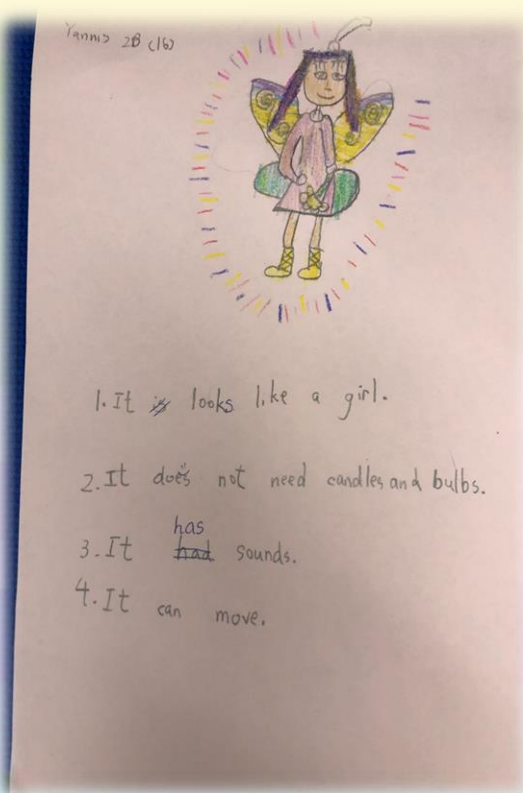 Yannis 2B (16)
1. It is looks like a girl.
2. It does not need candles and bulbs.
has
3. It had sounds.
4. It can move.